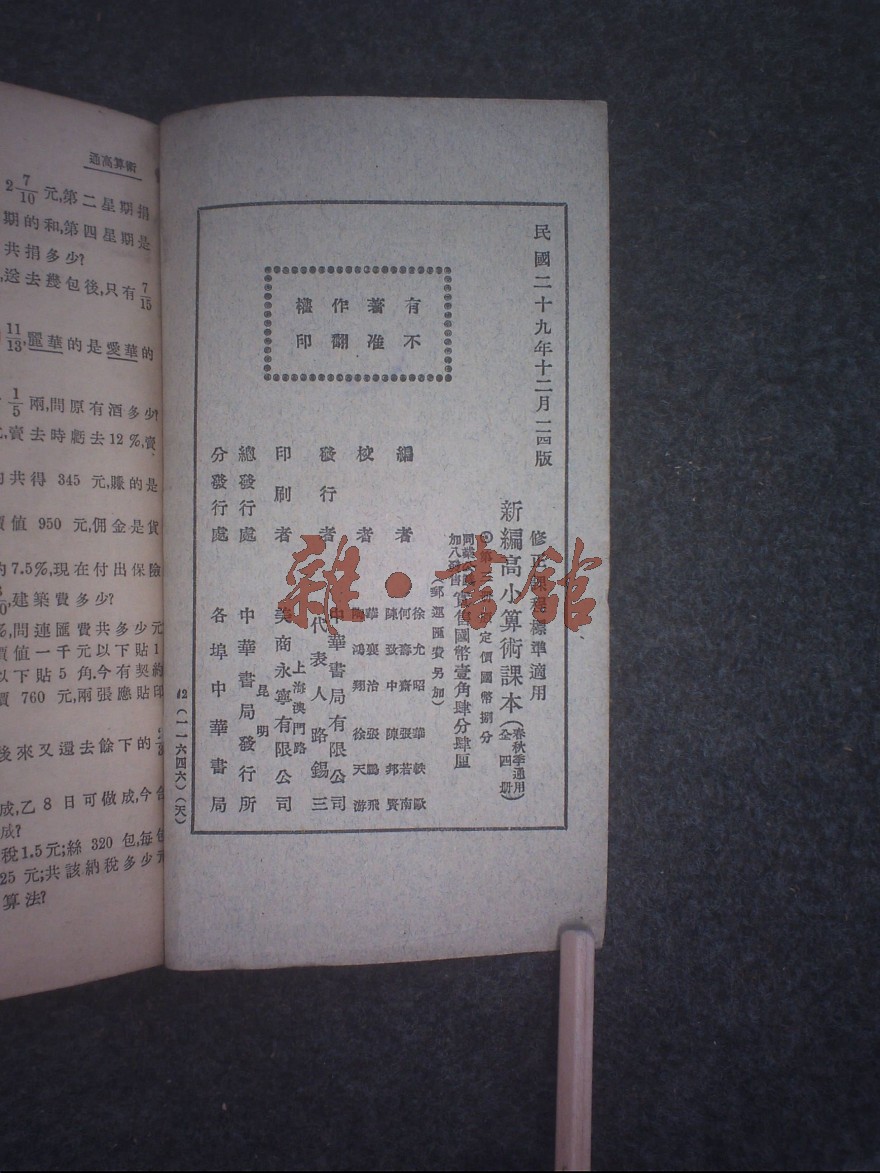 民國二十九年十二月二四版
有著作權
不准翻印
修正課程標準適用
新編高小算術課本（春秋季通用 全四册）
定價國幣捌分
售國幣壹角肆分肆厘
（郵運匯費另加）
編者
徐允昭 華軼歐
何壽齋 張若南
陳致中 陳邦賢
校者
華襄治 張鵬飛
鴻翔 徐天游
發行者
中華書局有限公司
代表人路錫三
印刷者
上海澳門路
美商永寧有限公司
總發行處
昆明
中華書局發行所
分發行處
各埠中華書局
（一一六四六）（天）
雜·書館
通高算術
2 7/10 元,第二星期捐
期的和,第四星期是
共捐多少?
,送去幾包後,只有 7/15
11/13,麗華的是愛華的
1/5 兩,問原有酒多少?
賣去時虧去12%,賣
共得 345 元,賺的是
值 950 元,佣金是貨
的7.5%,現在付出保險
建築費多少?
%,問連匯費共多少元
價值一千元以下貼1
以下貼 5 角.今有契約
價 760 元,兩張應貼印
後來又還去餘下的
成,乙 8 日可做成,今合
成?
稅1.5元;絲 320 包,每包
25 元;共該納稅多少元
算法?